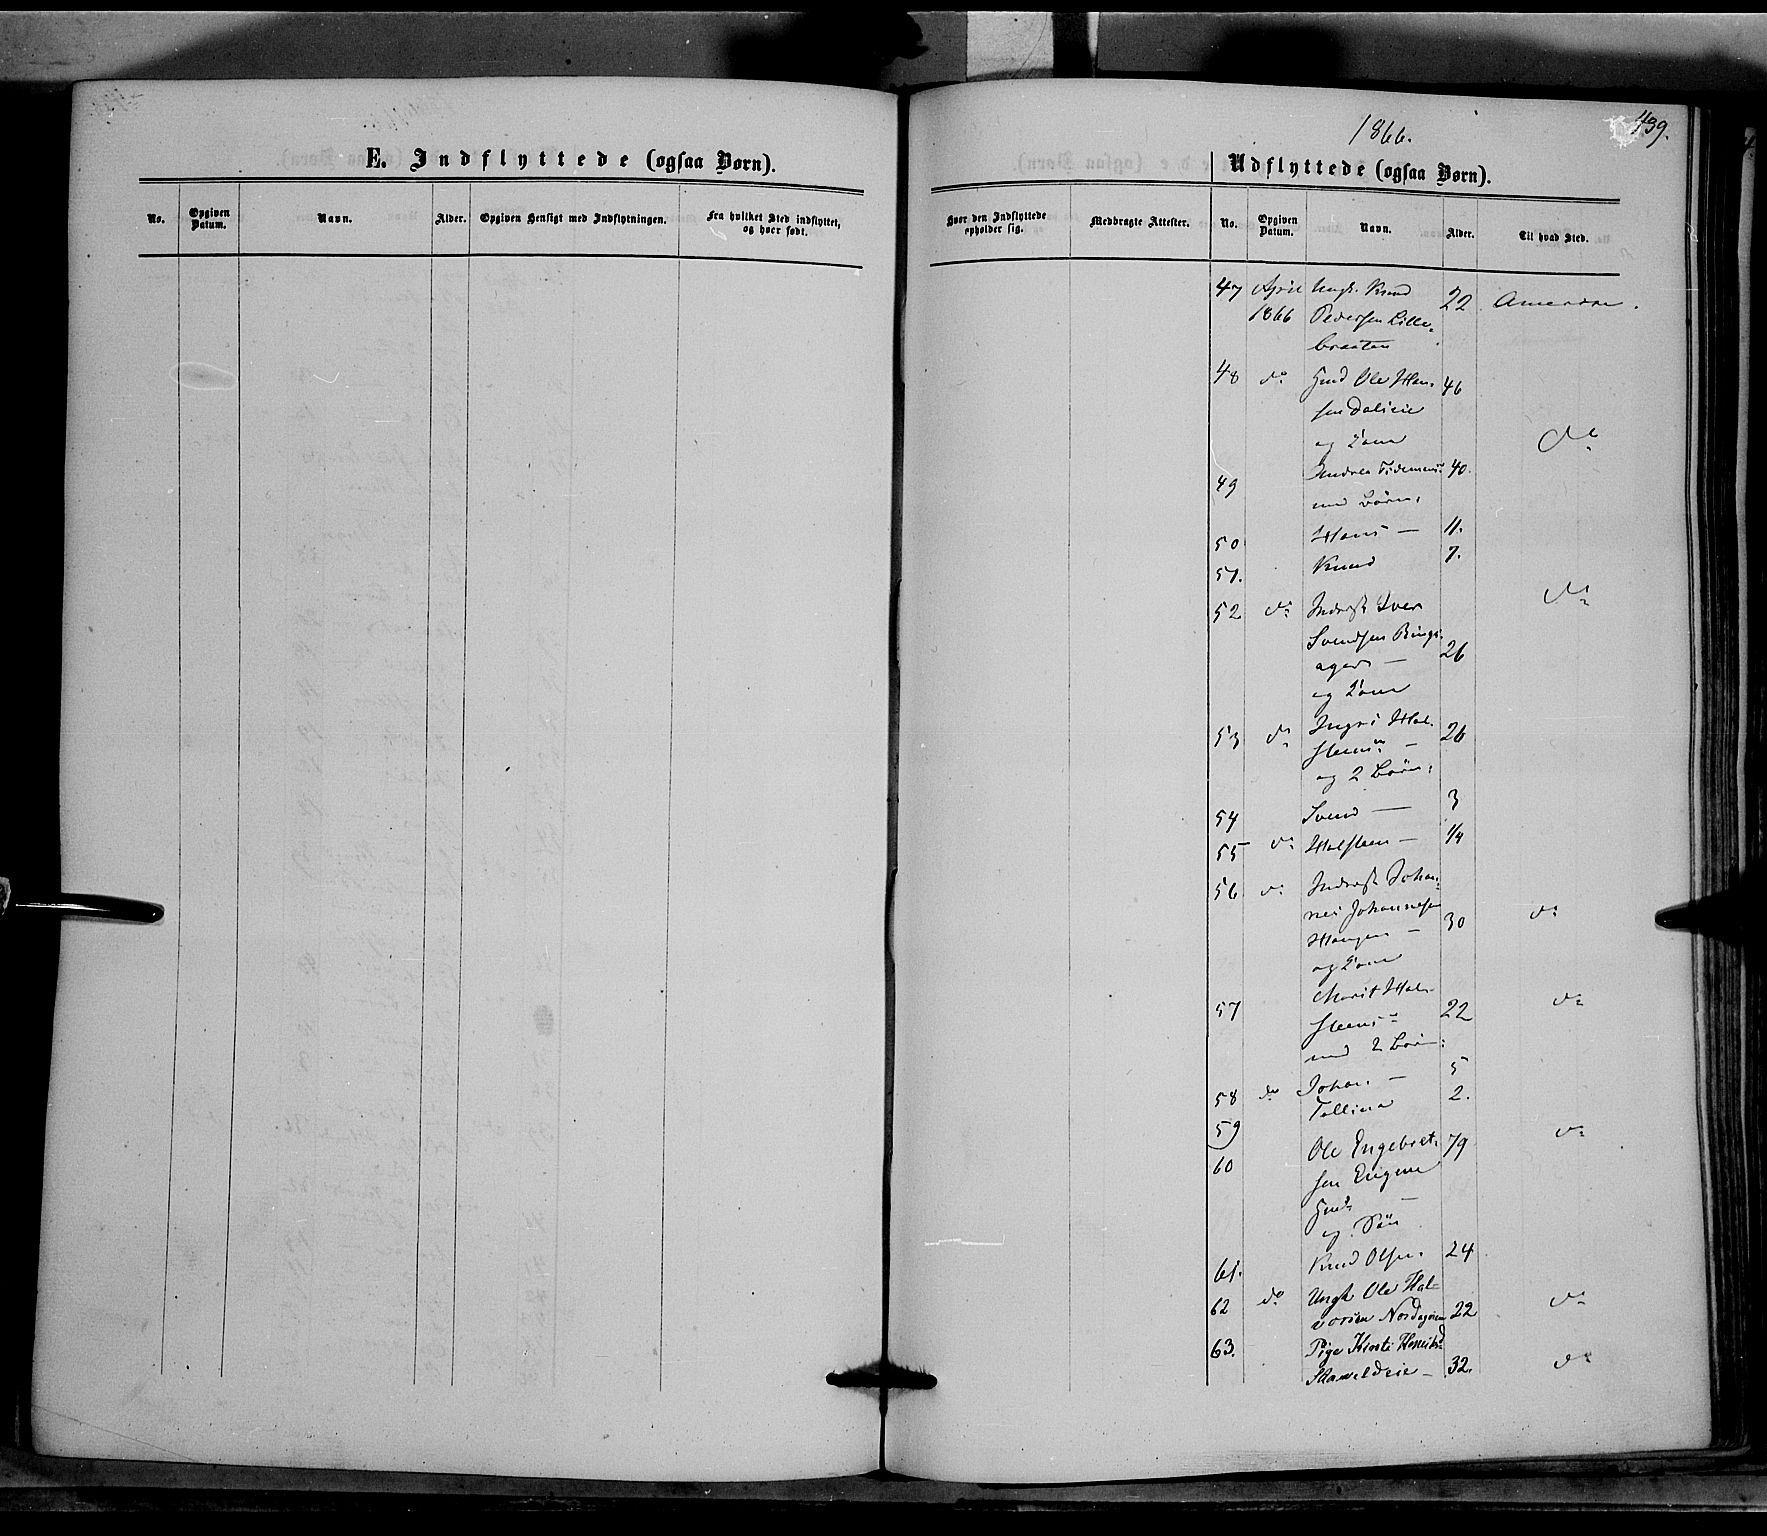 E. Indflyttede (ogsaa Børn).
No.
Opgiven Datum.
Navn.
Alder.
Opgiven Hensigt med Indflytningen.
Fra hvilket Sted indflyttet, og hvor født.
439.
1866.
Udflyttede (ogsaa Børn).
Hvor den Indflyttede opholder sig.
Medbragte Attester.
No.
Opgiven Datum.
Navn.
Alder.
Til hvad Sted.
47 April Ungk. Knud
1866 Pedersen Lille- 22 Amerika.
braaten
48 do Gmd Ole Han- 46
sen Dalieie
og Kone do
49 40.
med Børn:
50 Hans — 11.
51. Knud 7.
52 do Inderst Iver do
Svendsen Rings-
ager — 26
og Kone
53 do Ingri Hal- 26
steensd —
og 2 Børn:
54 Svend — 3
55 do Halsteen — 1/4
56 do Inderst Johan-
nes Johannesen 30 do
Haugen —
og Kone
57 Marit Hal- do
steensd 22
med 2 Børn:
58 do Johan — 5
59 Tolline 2.
60 Ole Engebret- 79 do
sen
Gmd —
og Søn
61. Knud Olsen. 24
62 do Ungk Ole Hal-
vorsen Nordageren 22 do
63. Pige Kirsti Henriksd
— 32. do